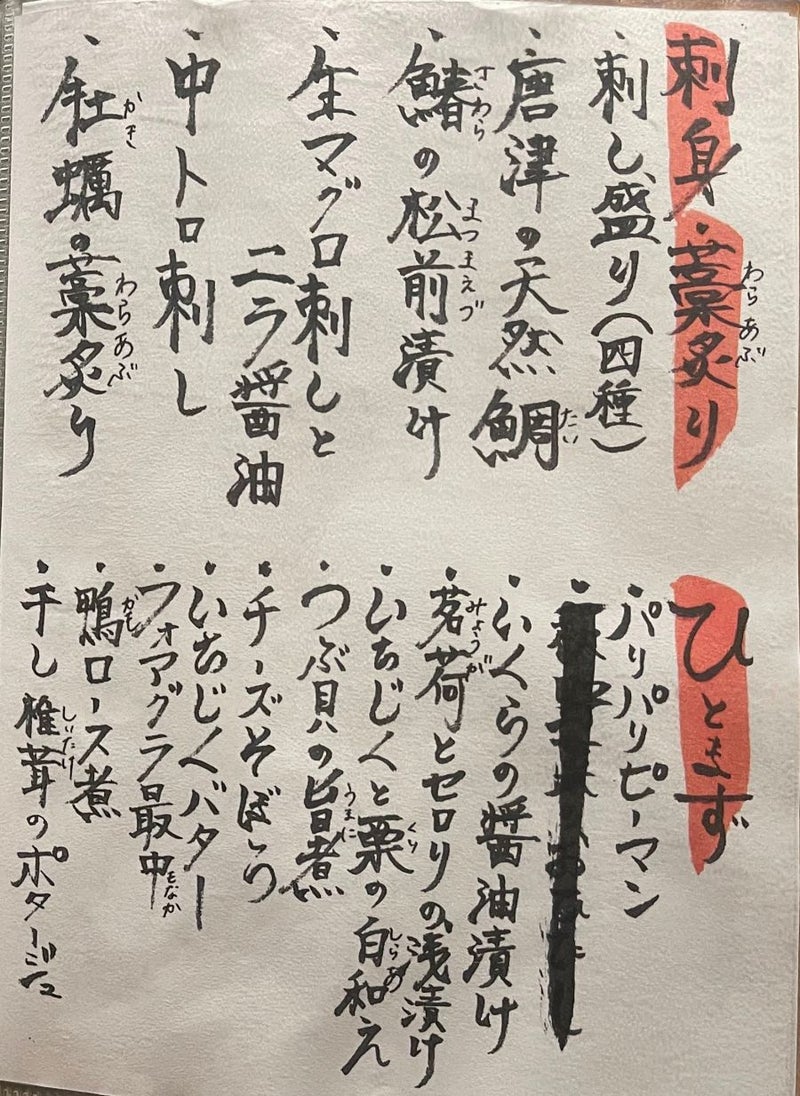 刺身・藁炙り
わらあぶ
・刺し盛り(四種)
・唐津の天然鯛
たい
・鰆の松前漬け
さわら
まつまえづ
・生マグロ刺しと
ニラ醤油
・中トロ刺し
・牡蠣の藁炙り
かき
わらあぶ
ひとまず
・パリパリピーマン
・いくらの醤油漬け
・茗荷とセロリの浅漬け
みょうが
・いちじくと栗の白和え
くり
しらあ
・つぶ貝の旨煮
うまに
・チーズそぼろ
・いちじくバター
・フォアグラ最中
もなか
・鴨ロース煮
かも
・干し椎茸のポタージュ
しいたけ